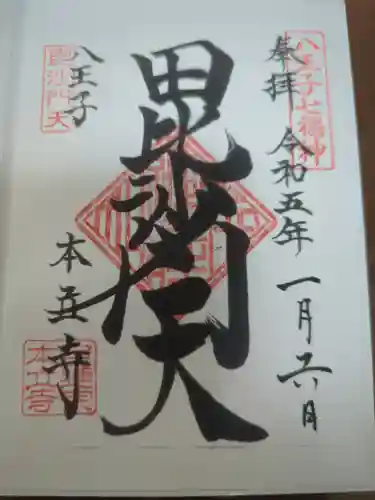 八王子七福神
奉拝 令和五年一月六日
毘沙門天
毘沙門天
八王子
本立寺
本立寺